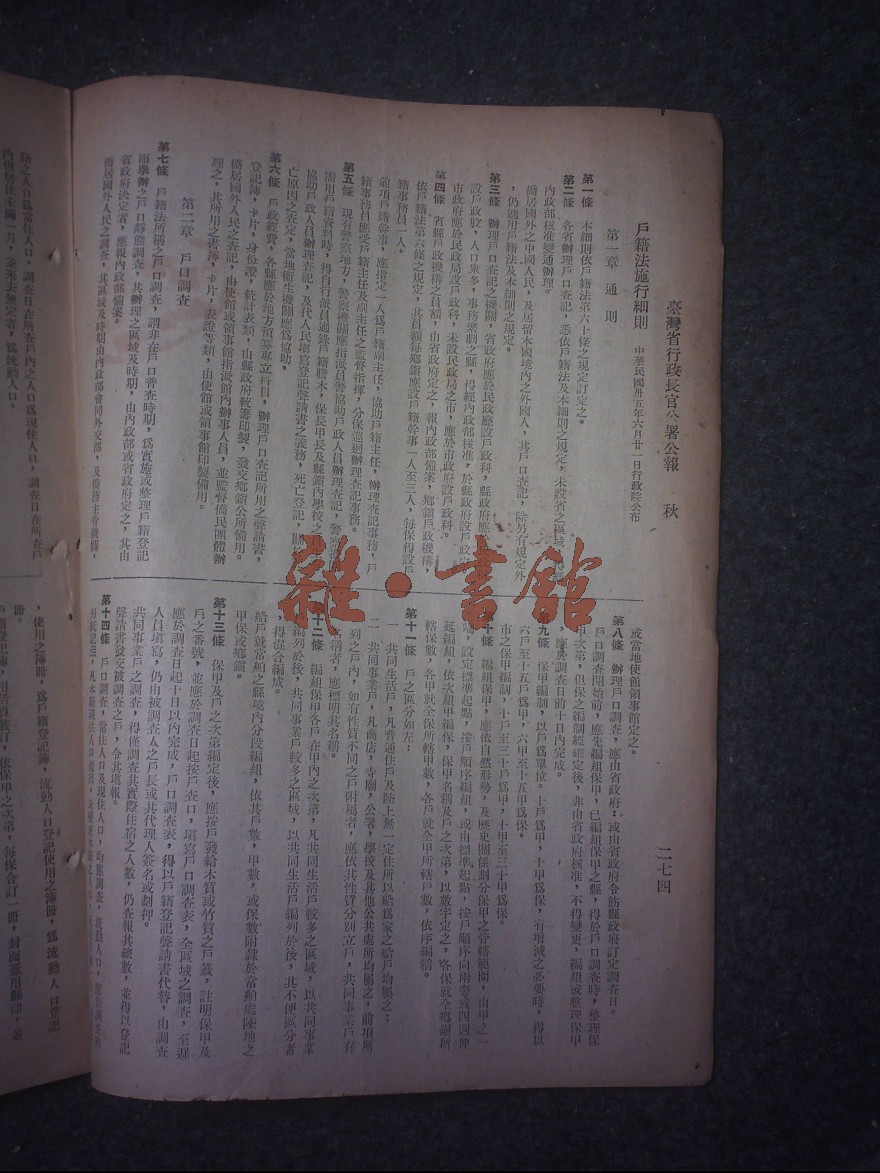 臺灣省行政長官公署公報　秋
二七四
戶籍法施行細則　中華民國卅五年六月廿一日行政院公布
第一章　通　則
第一條　本細則依戶籍法第六十條之規定訂定之。
第二條　各省辦理戶口查記，悉依戶籍法及本細則之規定，未設省之區域
內政部核准變通辦理。
僑居國外之中國人民，及居留本國境內之外國人，其戶口查記，除另有規定外
，仍適用戶籍法及本細則之規定。
第三條　辦理戶口查記之機關，省政府應於民政廳設戶政科，縣政府應
設戶政股，人口衆多，事務繁劇之縣，得經內政部核准，於縣政府設戶政
市政府應於民政局設戶政科，未設民政局之市，應於市政府設戶政科。
第四條　省縣戶政機構之員額，由省政府定之，報內政部備案，鄉鎮戶政機構，
依戶籍法第六條之規定，其員額每鄉鎮應設戶籍幹事一人至三人，每保得設戶
籍事務員一人。
前項戶籍幹事，應指定一人爲戶籍副主任，協助戶籍主任，辦理查記事務，戶
籍事務員應受戶籍主任及副主任之監督指揮，分保巡迴辦理查記事務。
第五條　現有警察地方，警察機關應指派員警協助戶政人員辦理查記，警察機
需用戶籍資料時，得自行派員過錄戶籍謄本，保長甲長及縣鎮內學校之
協助戶政人員辦理查記，及代人民填寫登記聲請書之義務，死亡登記，關
亡原因之查定，當地衛生機關應爲協助。
第六條　戶政經費，各縣應於地方預算專立科目，辦理戶口查記所用之聲請書，
登記簿，卡片，身份證，統計表類，由縣政府統籌印製，發交鄉鎮公所備用。
僑居國外人民之查記，由使館或領事館指派館內辦事人員，並監督僑民團體辦
理之，其所用之書簿，卡片，表證等類，由使館或領事館印製備用。
第二章　戶口調查
第七條　戶籍法所稱之戶口調查，謂非在戶口普查時期，爲實施或整理戶籍登記
而舉辦之戶口靜態調查，其辦理之區域及時期，由內政部或省政府定之，其由
省政府決定者，應報內政部備案。
僑居國外人民之調查，其區域及時期由內政部會同外交部，及僑務主管機關，
或當地使館領事館定之。
第八條　辦理戶口調查，應由省政府：或由省政府令飭縣政府訂定調查日。
戶口調查開始前，應先編組保甲，已編組保甲之縣，得於戶口調查時，整理保
甲次第，但保之編制經確定後，非由省政府核准，不得變更，編組或整理保甲
，應於調查日前十日內完成。
第九條　保甲編制，以戶爲單位。十戶爲甲，十甲爲保，有增減之必要時，得以
六戶至十五戶爲甲，六甲至十五甲爲保。
市之保甲編制，十戶至三十戶爲甲，十甲至三十甲爲保。
第十條　編組保甲，應依自然形勢，及歷史關係劃分保甲之管轄範圍，由甲之一
端，設定標準起點，按戶順序編組，或由標準起點，按戶順序向兩旁或四週伸
延編組，依次組甲編保，保甲名稱及戶之次第，以數字定之，各保就全鄉鎮所
轄保數，各甲就全保所轄甲數，各戶就全甲所轄戶數，依序編稱。
第十一條　戶之區分如左：
一　共同生活戶，凡普通住戶及陸上無一定住所以船爲家之船戶均屬之；
二　共同事業戶，凡商店，寺廟，公署，學校及其他公共處所均屬之，前項所
列之戶內，如有性質不同之戶附屬者，應依其性質分別立戶，共同事業戶有
名稱者，應標明其名稱。
第十二條　編組保甲各戶在甲內之次第，凡共同生活戶較多之區域，以共同事業
戶編列於後，共同事業戶較多之區域，以共同生活戶編列於後，其不便區分者
，得混合編成。
船戶就常舶之縣境內分段編組，依其戶數，甲數，或保數附隷於常舶處陸地之
甲保或鄉鎮。
第十三條　保甲及戶之次第編定後，應按戶發給木質或竹質之戶籤，註明保甲及
戶之番號，並應於調查日起按戶查口，填寫戶口調查表，全區域之調查，至遲
應於調查日起十日以內完成，戶口調查表，得以戶籍登記聲請書代替，由調查
人員填寫，仍由被調查人之戶長或其代理人簽名或劃押。
共同事業戶之調查，得僅調查其實際住宿之人數，仍查報其總數，並得以登記
聲請書發交被調查之戶，令其填報。
第十四條　戶口調查，常住人口及現住人口，均應調查，流動人口，應於調查時
籍之人口爲常住人口，調查日在所查戶內之人口爲現住人口，調查日在所查戶
內與居住未滿一月，並來去無定者，爲流動人口。
，使用之簿冊，爲戶籍登記簿，流動人口登記使用之簿冊，爲流動人口登記
冊。
依保甲之次第，每保合訂一冊，封面蓋用縣印，並
雜·書館